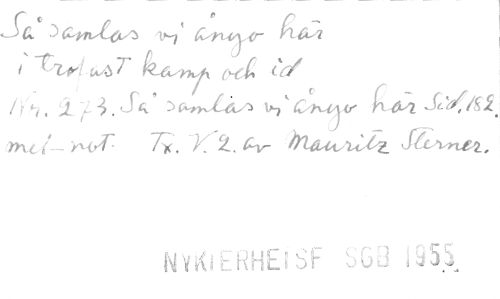 Så samlas vi ånyo här
i trofast kamp och id
Nr. 273. Så samlas vi ånyo här Sid. 182.
mel-not. Tx. V. 2. av Mauritz Sterner.
NYKTERHETSF SGB 1955